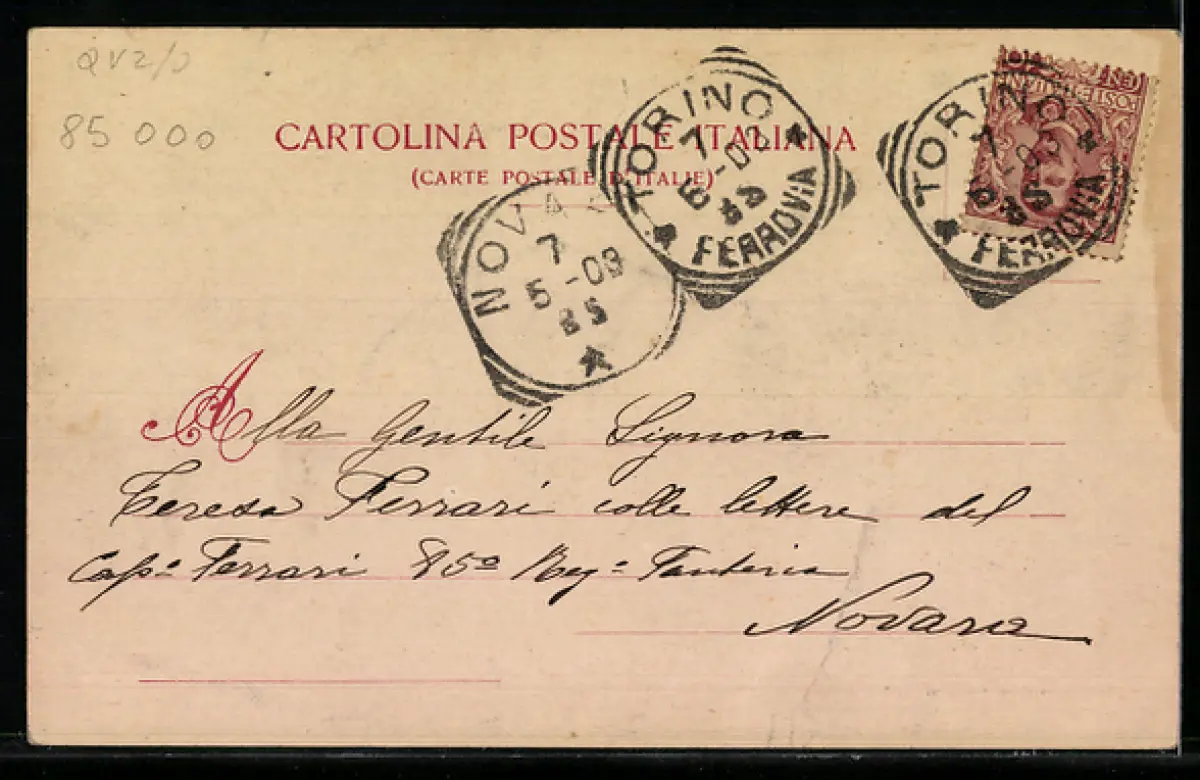 85 000
CARTOLINA POSTALE ITALIANA
(CARTE POSTALE D'ITALIE)
TORINO
7
FERROVIA
TORINO
7
FERROVIA
NOVA
7
5-03
Alla Gentile Signora
Teresa Ferrari colle lettere del
Cap.º Ferrari 85º Reg.º Fanteria
Novara